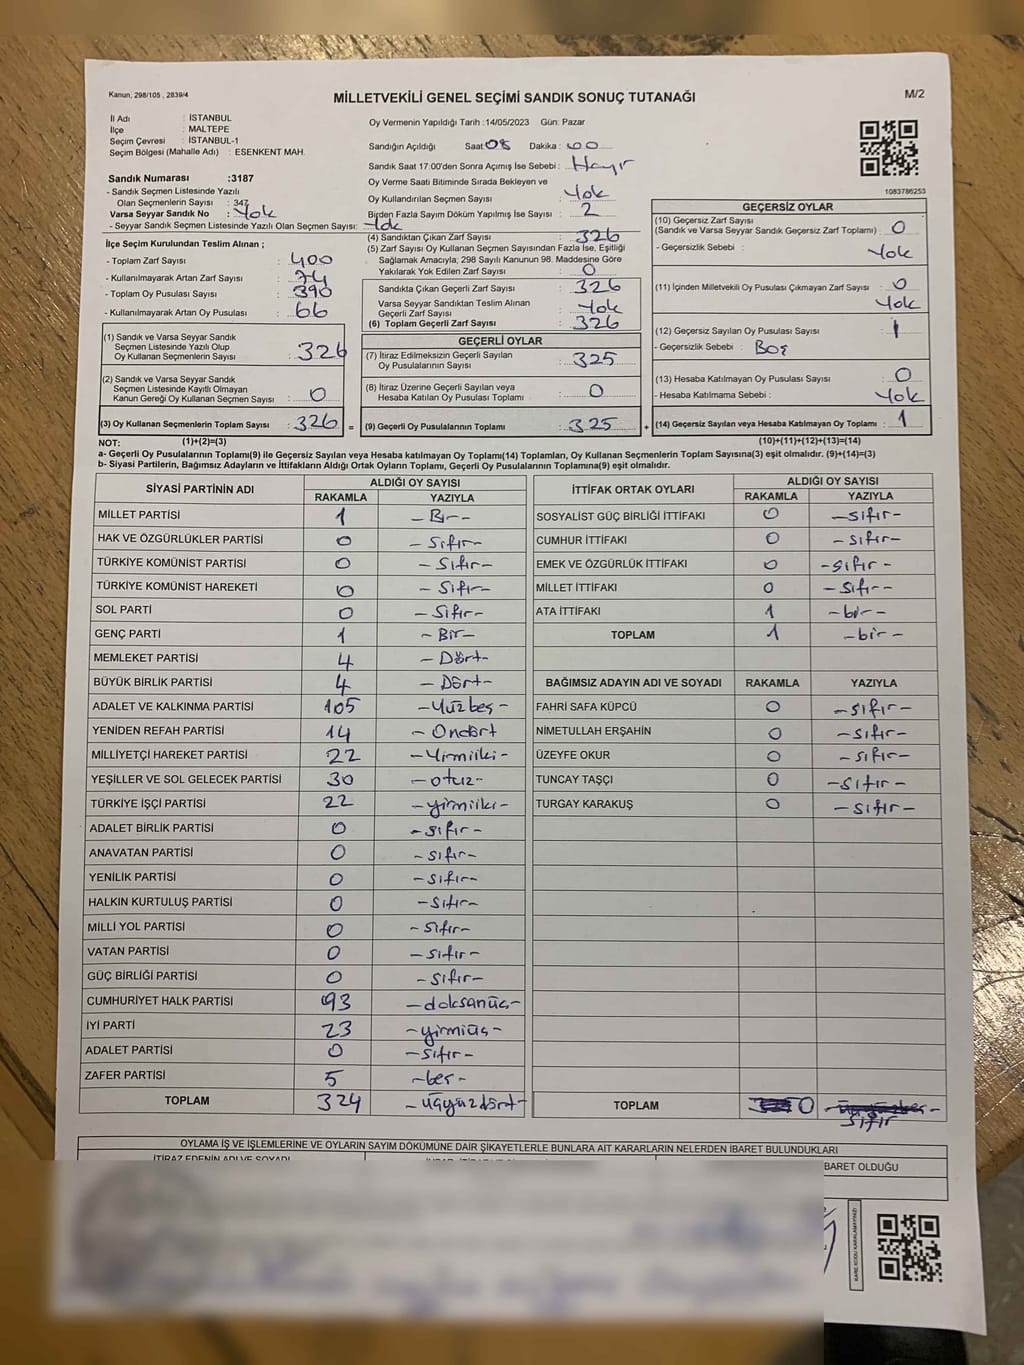 Kanun; 298/105 , 2839/4
MİLLETVEKİLİ GENEL SEÇİMİ SANDIK SONUÇ TUTANAĞI
M/2
İl Adı : İSTANBUL
İlçe : MALTEPE
Seçim Çevresi : İSTANBUL-1
Seçim Bölgesi (Mahalle Adı) : ESENKENT MAH.
Sandık Numarası :3187
- Sandık Seçmen Listesinde Yazılı
Olan Seçmenlerin Sayısı : 347
Varsa Seyyar Sandık No : Yok
- Seyyar Sandık Seçmen Listesinde Yazılı Olan Seçmen Sayısı: Yok
İlçe Seçim Kurulundan Teslim Alınan ;
- Toplam Zarf Sayısı : 400
- Kullanılmayarak Artan Zarf Sayısı : 74
- Toplam Oy Pusulası Sayısı : 390
- Kullanılmayarak Artan Oy Pusulası : 66
(1) Sandık ve Varsa Seyyar Sandık
Seçmen Listesinde Yazılı Olup
Oy Kullanan Seçmenlerin Sayısı : 326
(2) Sandık ve Varsa Seyyar Sandık
Seçmen Listesinde Kayıtlı Olmayan
Kanun Gereği Oy Kullanan Seçmen Sayısı : 0
(3) Oy Kullanan Seçmenlerin Toplam Sayısı : 326 =
Oy Vermenin Yapıldığı Tarih :14/05/2023 Gün: Pazar
Sandığın Açıldığı Saat: 08 Dakika : 00
Sandık Saat 17:00'den Sonra Açımış İse Sebebi : Hayır
Oy Verme Saati Bitiminde Sırada Bekleyen ve
Oy Kullandırılan Seçmen Sayısı : Yok
Birden Fazla Sayım Döküm Yapılmış İse Sayısı : 2
(4) Sandıktan Çıkan Zarf Sayısı : 326
(5) Zarf Sayısı Oy Kullanan Seçmen Sayısından Fazla İse, Eşitliği
Sağlamak Amacıyla; 298 Sayılı Kanunun 98. Maddesine Göre
Yakılarak Yok Edilen Zarf Sayısı : 0
Sandıkta Çıkan Geçerli Zarf Sayısı : 326
Varsa Seyyar Sandıktan Teslim Alınan
Geçerli Zarf Sayısı : Yok
(6) Toplam Geçerli Zarf Sayısı : 326
GEÇERLİ OYLAR
(7) İtiraz Edilmeksizin Geçerli Sayılan
Oy Pusulalarının Sayısı : 325
(8) İtiraz Üzerine Geçerli Sayılan veya
Hesaba Katılan Oy Pusulası Toplamı : 0
(9) Geçerli Oy Pusulalarının Toplamı : 325 +
1083786253
GEÇERSİZ OYLAR
(10) Geçersiz Zarf Sayısı
(Sandık ve Varsa Seyyar Sandık Geçersiz Zarf Toplamı) : 0
- Geçersizlik Sebebi : Yok
(11) İçinden Milletvekili Oy Pusulası Çıkmayan Zarf Sayısı : 0
Yok
(12) Geçersiz Sayılan Oy Pusulası Sayısı : 1
- Geçersizlik Sebebi : Boş
(13) Hesaba Katılmayan Oy Pusulası Sayısı : 0
- Hesaba Katılmama Sebebi : Yok
(14) Geçersiz Sayılan veya Hesaba Katılmayan Oy Toplamı : 1
NOT: (1)+(2)=(3) (10)+(11)+(12)+(13)=(14)
a- Geçerli Oy Pusulalarının Toplamı(9) ile Geçersiz Sayılan veya Hesaba katılmayan Oy Toplamı(14) Toplamları, Oy Kullanan Seçmenlerin Toplam Sayısına(3) eşit olmalıdır. (9)+(14)=(3)
b- Siyasi Partilerin, Bağımsız Adayların ve İttifakların Aldığı Ortak Oyların Toplamı, Geçerli Oy Pusulalarının Toplamına(9) eşit olmalıdır.
SİYASİ PARTİNİN ADI ALDIĞI OY SAYISI
RAKAMLA YAZIYLA
MİLLET PARTİSİ 1 - Bir -
HAK VE ÖZGÜRLÜKLER PARTİSİ 0 - Sıfır -
TÜRKİYE KOMÜNİST PARTİSİ 0 - Sıfır -
TÜRKİYE KOMÜNİST HAREKETİ 0 - Sıfır -
SOL PARTİ 0 - Sıfır -
GENÇ PARTİ 1 - Bir -
MEMLEKET PARTİSİ 4 - Dört -
BÜYÜK BİRLİK PARTİSİ 4 - Dört -
ADALET VE KALKINMA PARTİSİ 105 - Yüzbeş -
YENİDEN REFAH PARTİSİ 14 - Ondört
MİLLİYETÇİ HAREKET PARTİSİ 22 - Yirmiiki -
YEŞİLLER VE SOL GELECEK PARTİSİ 30 - otuz -
TÜRKİYE İŞÇİ PARTİSİ 22 - yirmiiki -
ADALET BİRLİK PARTİSİ 0 - sıfır -
ANAVATAN PARTİSİ 0 - sıfır -
YENİLİK PARTİSİ 0 - sıfır -
HALKIN KURTULUŞ PARTİSİ 0 - sıfır -
MİLLİ YOL PARTİSİ 0 - sıfır -
VATAN PARTİSİ 0 - sıfır -
GÜÇ BİRLİĞİ PARTİSİ 0 - sıfır -
CUMHURİYET HALK PARTİSİ 93 - doksanüç -
İYİ PARTİ 23 - yirmiüç -
ADALET PARTİSİ 0 - sıfır -
ZAFER PARTİSİ 5 - beş -
TOPLAM 324 - üçyüzdört -
İTTİFAK ORTAK OYLARI ALDIĞI OY SAYISI
RAKAMLA YAZIYLA
SOSYALİST GÜÇ BİRLİĞİ İTTİFAKI 0 - sıfır -
CUMHUR İTTİFAKI 0 - sıfır -
EMEK VE ÖZGÜRLÜK İTTİFAKI 0 - sıfır -
MİLLET İTTİFAKI 0 - sıfır -
ATA İTTİFAKI 1 - bir -
TOPLAM 1 - bir -
BAĞIMSIZ ADAYIN ADI VE SOYADI RAKAMLA YAZIYLA
FAHRİ SAFA KÜPCÜ 0 - sıfır -
NİMETULLAH ERŞAHİN 0 - sıfır -
ÜZEYFE OKUR 0 - sıfır -
TUNCAY TAŞÇI 0 - sıfır -
TURGAY KARAKUŞ 0 - sıfır -
TOPLAM 0 sıfır
OYLAMA İŞ VE İŞLEMLERİNE VE OYLARIN SAYIM DÖKÜMÜNE DAİR ŞİKAYETLERLE BUNLARA AİT KARARLARIN NELERDEN İBARET BULUNDUKLARI
İTİRAZ EDENİN ADI VE SOYADI
BARET OLDUĞU